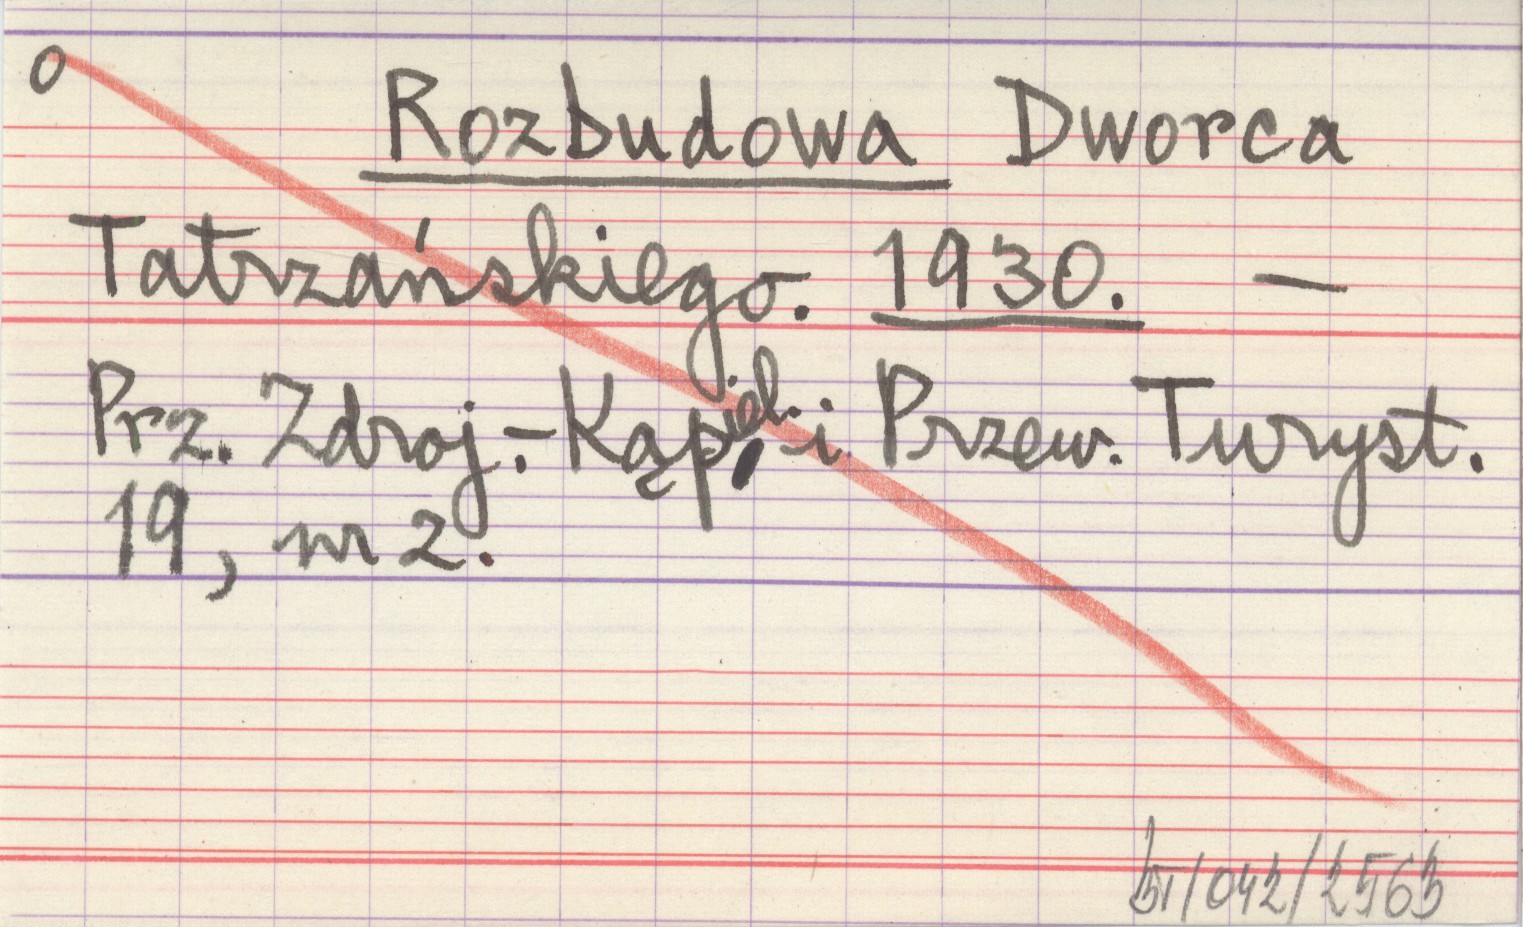 o
Rozbudowa Dworca
Tatrzańskiego. 1930. —
Prz. Zdroj.-Kąpiel. i Przew. Turyst.
19, nr 2.
BT/042/2563